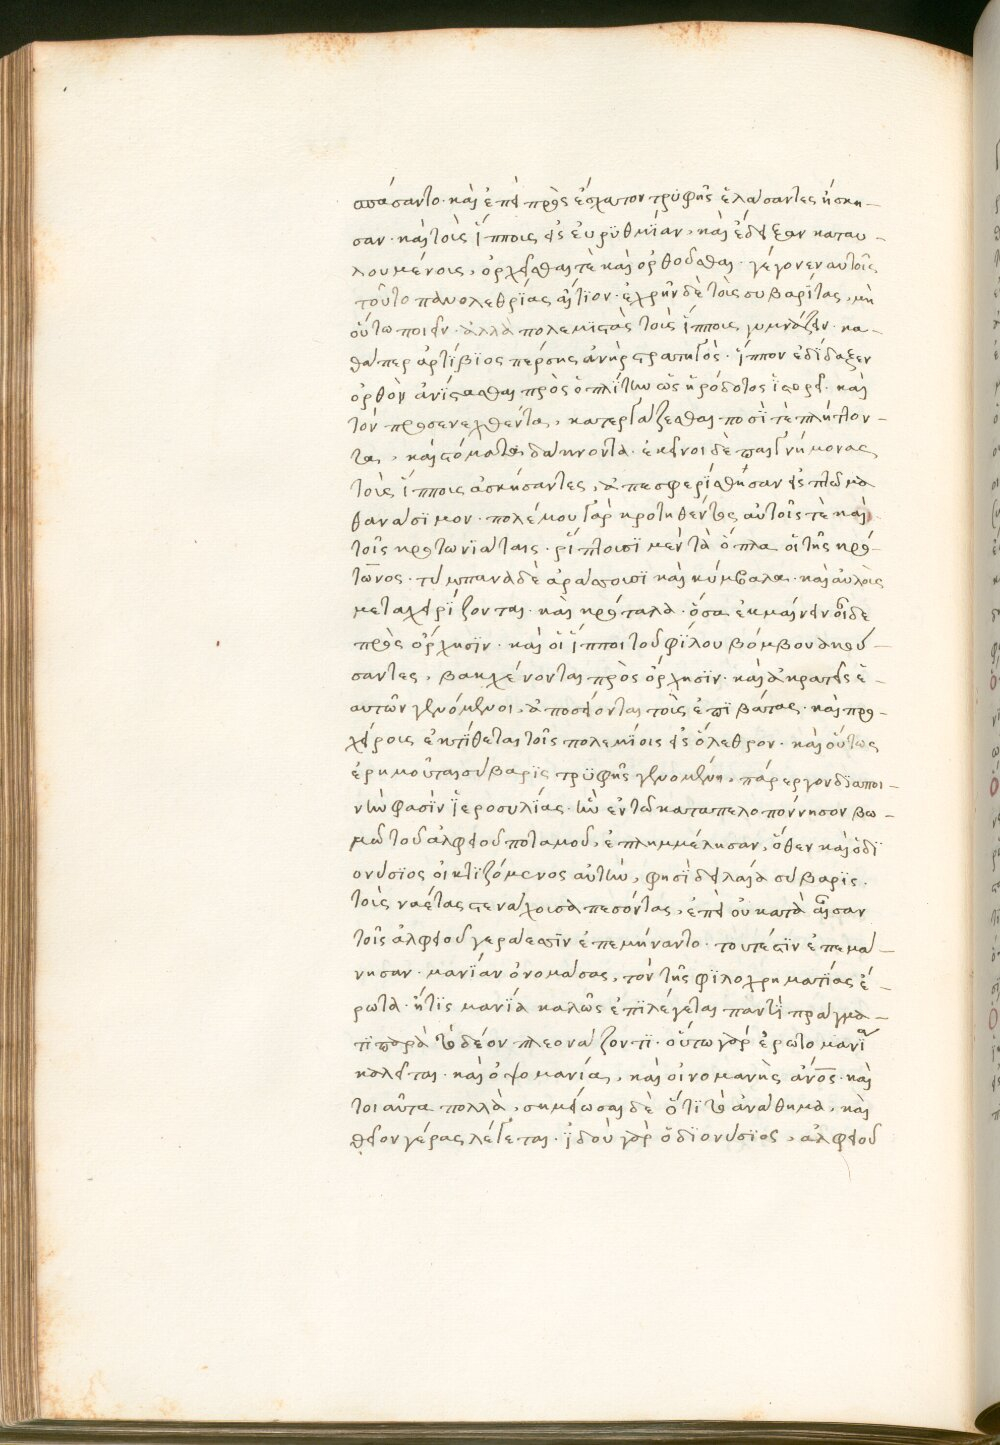 σπάσαντο· καὶ ἐπεὶ πρὸς ἔσχατον τρυφῆς ἐλάσαντες ἤσκη-
σαν· καὶ τοὺς ἵππους εἰς εὐρυθμίαν, καὶ ἐδίδαξαν καταυ-
λουμένους, ὀρχεῖσθαι τὲ καὶ ὀρθοῦσθαι· γέγονεν αὐτοῖς
τοῦτο πανολεθρίας αἴτιον· ἐχρῆν δὲ τοὺς συβαρίτας, μὴ
οὕτω ποιεῖν· ἀλλὰ πολεμιστὰς τοὺς ἵππους γυμνάζειν· κα-
θάπερ ἀρτίβιος πέρσης ἀνὴρ στρατηγὸς· ἵππον ἐδίδαξεν
ὀρθὸν ἀνίστασθαι πρὸς ὁπλίτην ὡς ἡρόδοτος ἱστορεῖ· καὶ
τὸν προσενεχθέντα, κατεργάζεσθαι ποσί τὲ πλήττον-
τα, καὶ στόματι δάκνοντα· ἐκεῖνοι δὲ παιγνήμονας
τοὺς ἵππους ἀσκήσαντες, ἀπεσφερίσθησαν εἰς πτῶμα
θανάσιμον· πολέμου γὰρ κροτηθέντος αὐτοῖς τὲ καὶ
τοῖς κροτωνιάταις· ῥίπτουσι μὲν τὰ ὅπλα οἱ τῆς κρό-
τωνος· τύμπανα δὲ ἀράσσουσι καὶ κύμβαλα· καὶ αὐλοὺς
μεταχειρίζονται· καὶ κρόταλα· ὅσα ἐκμαίνειν οἶδε
πρὸς ὄρχησιν· καὶ οἱ ἵπποι τοῦ φίλου βόμβου ἀκού-
σαντες, βακχεύονται πρὸς ὄρχησιν· καὶ ἀκρατεῖς ἑ-
αυτῶν γενόμενοι, ἀποσείονται τοὺς ἐπιβάτας· καὶ προ-
χείροις ἐκτίθεται τοῖς πολεμίοις εἰς ὄλεθρον· καὶ οὕτως
ἐρημοῦται σύβαρις τρυφῆς γενομένη, πάρεργον δὲ αποι-
νῶν φασὶν ἱεροσυλίας· ἣν ἐν τῷ κατα πελοπόννησον βω-
μῷ τοῦ ἀλφειοῦ ποταμοῦ, ἐπλημμέλησαν, ὅθεν καὶ ὁ δι
ονύσιος οἰκτιζόμενος αὐτὴν, φησὶ δειλαία σύβαρις·
τοὺς ναέτας στενάχουσα πεσόντας, ἐπεὶ οὐ κατὰ αἶσαν
τοῖς ἀλφειοῦ γεράεσσιν ἐπεμήναντο· τουτέστιν ἐπεμά-
νησαν· μανίαν ὀνομάσας, τὸν τῆς φιλοχρηματίας ἔ-
ρωτα· ἥτις μανία καλῶς ἐπιλέγεται παντὶ πράγμα-
τι παρὰ τὸ δέον πλεονάζοντι· οὕτω γὰρ ἐρωτομανία
καλεῖται· καὶ ὀψομανία, καὶ οἰνομανὴς ἄν̅ο̅ς· καὶ
τοιαῦτα πολλὰ, σημείωσαι δὲ ὅτι τὸ ἀνάθημα, καὶ
θεῖον γέρας λέγεται· ἰδοὺ γὰρ ὁ διονύσιος, ἀλφειοῦ